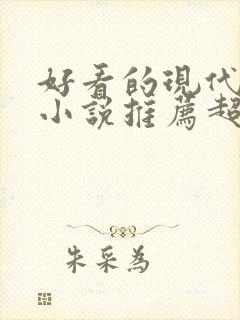 好看的現代
小說推薦超
朱采為